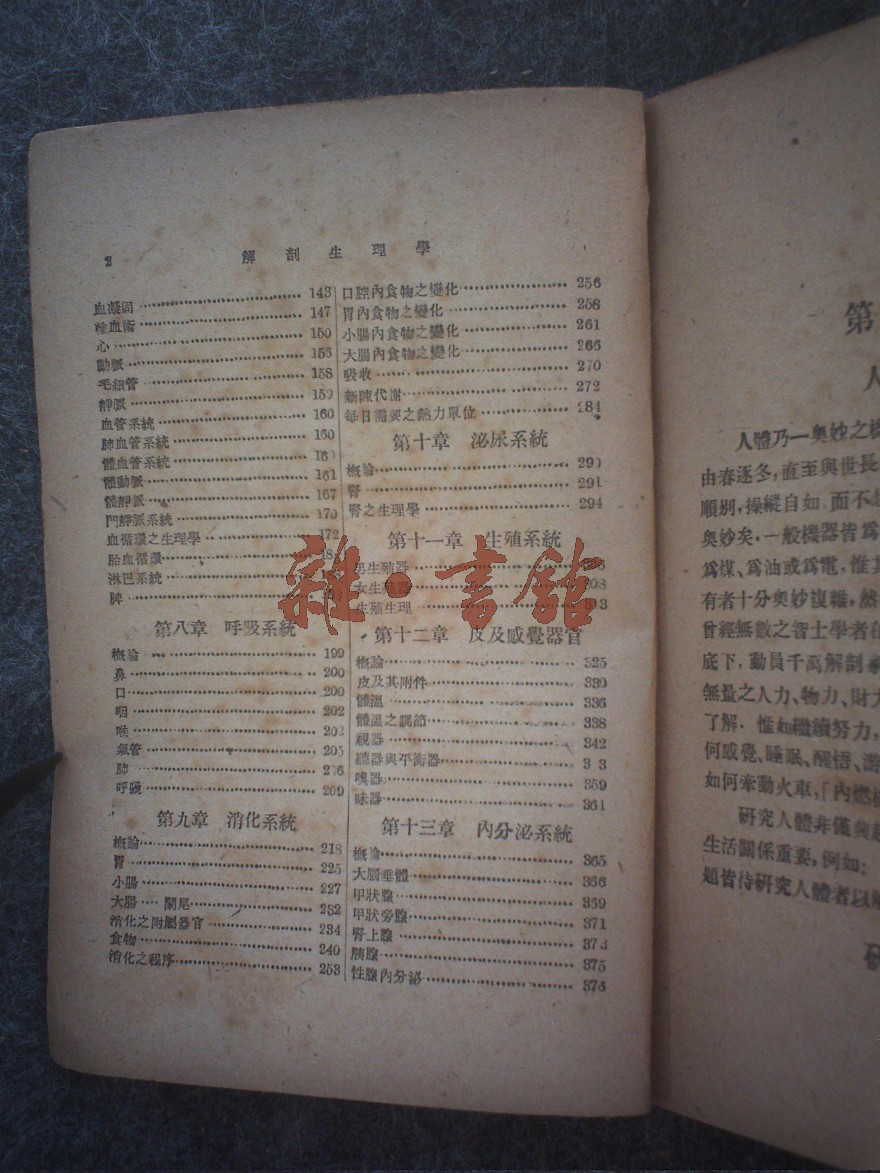 2
解剖生理學
血凝固 143
輸血術 147
心 150
動脈 156
毛細管 158
靜脈 159
血管系統 160
肺血管系統 160
體血管系統
體動脈 161
體靜脈 167
門靜脈系統 170
血循環之生理學 172
胎血循環
淋巴系統
脾
第八章 呼吸系統
概論 199
鼻 200
口 200
咽 202
喉
氣管 205
肺
呼吸 209
第九章 消化系統
概論 218
胃 225
小腸 227
大腸 闌尾 232
消化之附屬器官 234
食物 240
消化之程序 253
口腔內食物之變化 256
胃內食物之變化 258
小腸內食物之變化 261
大腸內食物之變化 266
吸收 270
新陳代謝 272
每日需要之熱力單位 284
第十章 泌尿系統
概論
腎 291
腎之生理學 294
第十一章 生殖系統
男生殖器
女生殖器
生殖生理
第十二章 皮及感覺器官
概論 325
皮及其附件 330
體溫 336
體溫之調節 338
視器 342
聽器與平衡器
嗅器 359
味器 361
第十三章 內分泌系統
概論 365
大腦垂體 366
甲狀腺 369
甲狀旁腺 371
腎上腺 373
胰腺 375
性腺內分泌 376
雜·書館
第
人
人體乃一奧妙之
由春逐冬,直至與世長
順別,操縱自如 而不
奧妙矣.一般機器皆爲
爲煤、爲油或爲電,惟其
有者十分奧妙復雜,然
曾經無數之智士學者在
底下,動員千萬解剖
無量之人力、物力、財
了解.惟如繼續努力,
何感覺、睡眠、醒悟、游
如何牽動火車,「內燃
研究人體非僅興
生活關係重要,例如:
題皆待研究人體者以
研